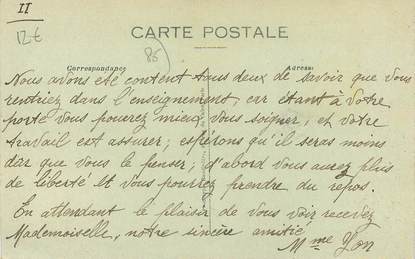 II
12 €
85
CARTE POSTALE
Correspondance
Adresse
Nous avons été content tous deux de savoir que vous
rentriez dans l'enseignement, car étant à votre
porté vous pouvez mieux vous soigner, et votre
travail est assurer; espérons qu'il seras moins
dar que vous le penser; d'abord vous aurez plus
de liberté et vous pourriez prendre du repos.
En attendant le plaisir de vous voir recevez
Mademoiselle, notre sincère amitié
Mme